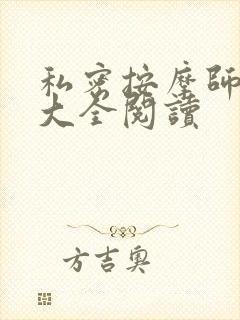 私密按摩師
大全閱讀
方吉奧